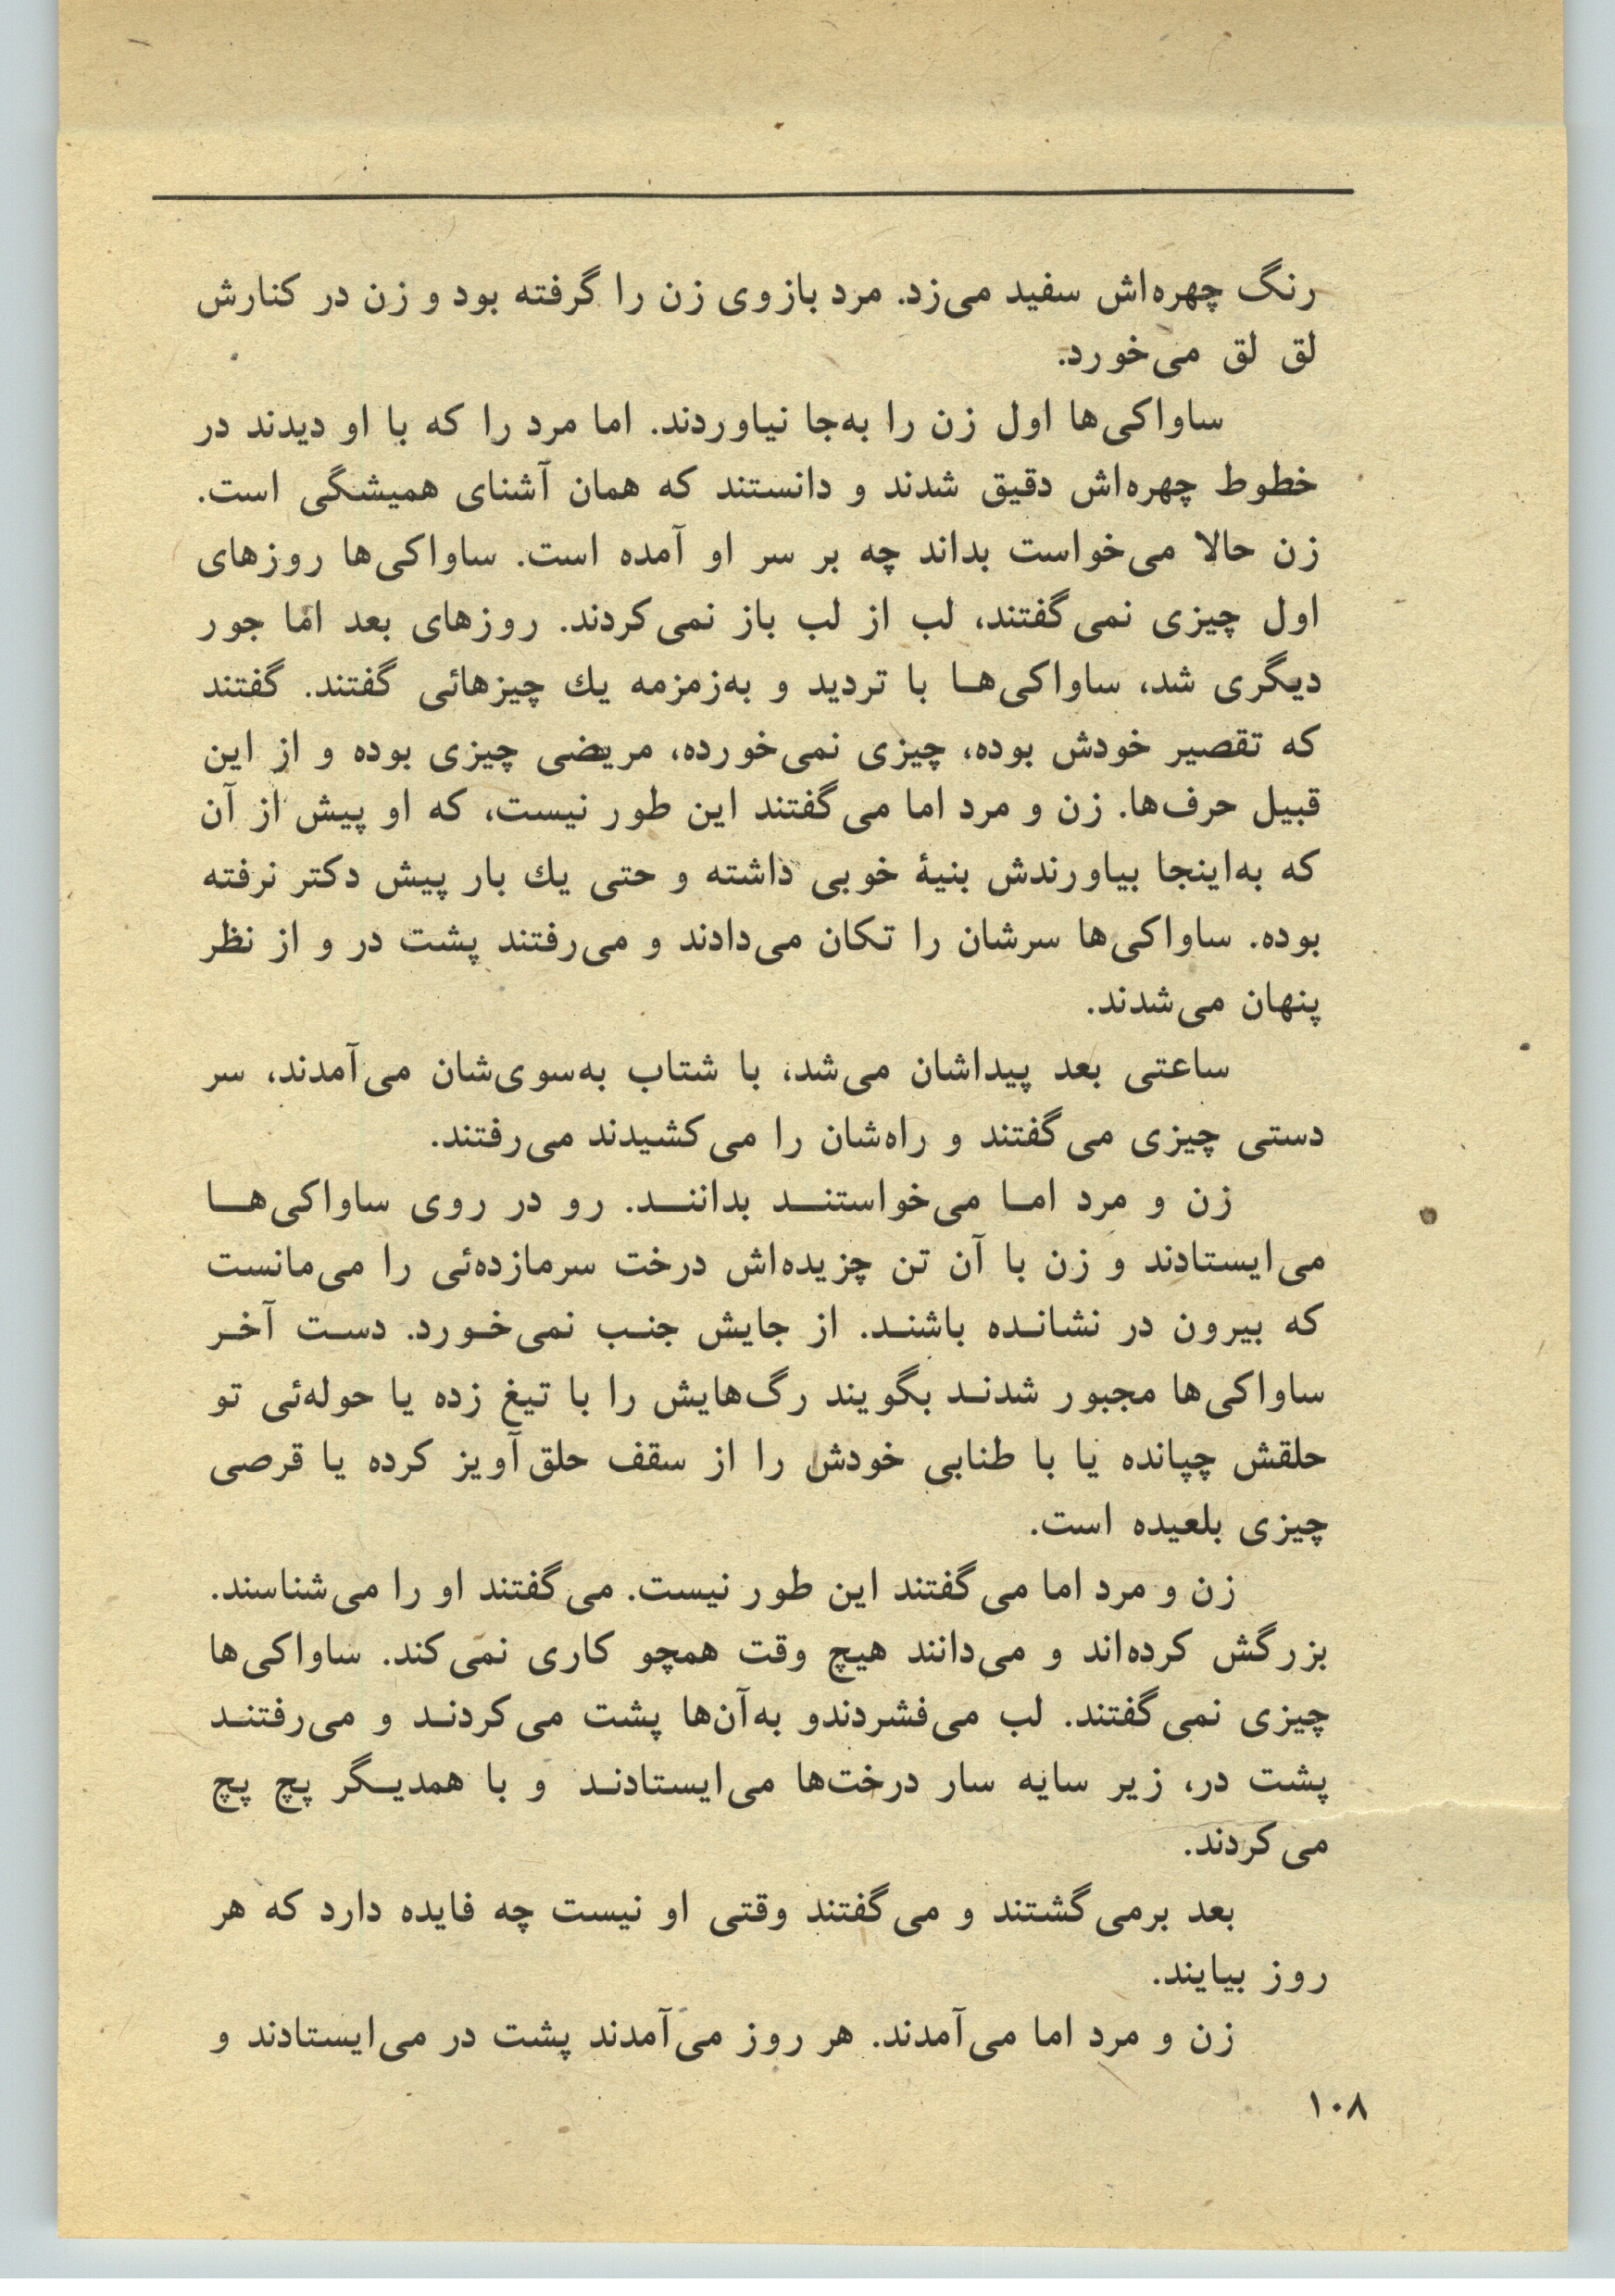 رنگ چهره‌اش سفید می‌زد. مرد بازوی زن را گرفته بود و زن در کنارش
لق لق می‌خورد.
ساواکی‌ها اول زن را به‌جا نیاوردند. اما مرد را که با او دیدند در
خطوط چهره‌اش دقیق شدند و دانستند که همان آشنای همیشگی است.
زن حالا می‌خواست بداند چه بر سر او آمده است. ساواکی‌ها روزهای
اول چیزی نمی‌گفتند، لب از لب باز نمی‌کردند. روزهای بعد امّا جور
دیگری شد، ساواکی‌ها با تردید و به‌زمزمه یك چیزهائی گفتند. گفتند
که تقصیر خودش بوده، چیزی نمی‌خورده، مریضی چیزی بوده و از این
قبیل حرف‌ها. زن و مرد اما می‌گفتند این طور نیست، که او پیش از آن
که به‌اینجا بیاورندش بنیهٔ خوبی داشته و حتی یك بار پیش دکتر نرفته
بوده. ساواکی‌ها سرشان را تکان می‌دادند و می‌رفتند پشت در و از نظر
پنهان می‌شدند.
ساعتی بعد پیداشان می‌شد، با شتاب به‌سوی‌شان می‌آمدند، سر
دستی چیزی می‌گفتند و راه‌شان را می‌کشیدند می‌رفتند.
زن و مرد اما می‌خواستند بدانند. رو در روی ساواکی‌ها
می‌ایستادند و زن با آن تن چزیده‌اش درخت سرمازده‌ئی را می‌مانست
که بیرون در نشانده باشند. از جایش جنب نمی‌خورد. دست آخر
ساواکی‌ها مجبور شدند بگویند رگ‌هایش را با تیغ زده یا حوله‌ئی تو
حلقش چپانده یا با طنابی خودش را از سقف حلق‌آویز کرده یا قرصی
چیزی بلعیده است.
زن و مرد اما می‌گفتند این طور نیست. می‌گفتند او را می‌شناسند.
بزرگش کرده‌اند و می‌دانند هیچ وقت همچو کاری نمی‌کند. ساواکی‌ها
چیزی نمی‌گفتند. لب می‌فشردندو به‌آن‌ها پشت می‌کردند و می‌رفتند
پشت در، زیر سایه سار درخت‌ها می‌ایستادند و با همدیگر پچ پچ
می‌کردند.
بعد برمی‌گشتند و می‌گفتند وقتی او نیست چه فایده دارد که هر
روز بیایند.
زن و مرد اما می‌آمدند. هر روز می‌آمدند پشت در می‌ایستادند و
۱۰۸